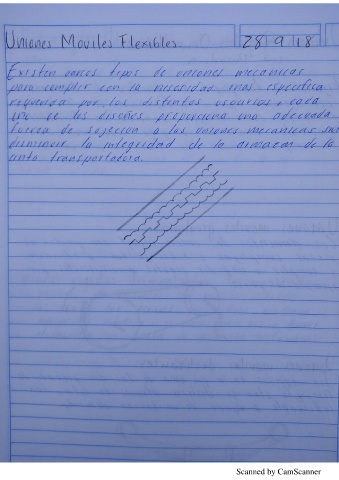 Uniones Moviles Flexibles
28 9 18
Existen varios tipos de uniones mecanicas
para cumplir con la necesidad mas especifica
requerida por los distintos usuarios, cada
uno de los diseños proporciona una adecuada
fuerza de sujecion a las uniones mecanicas sin
disminuir la integridad de la armazon de la
cinta transportadora.
Scanned by CamScanner